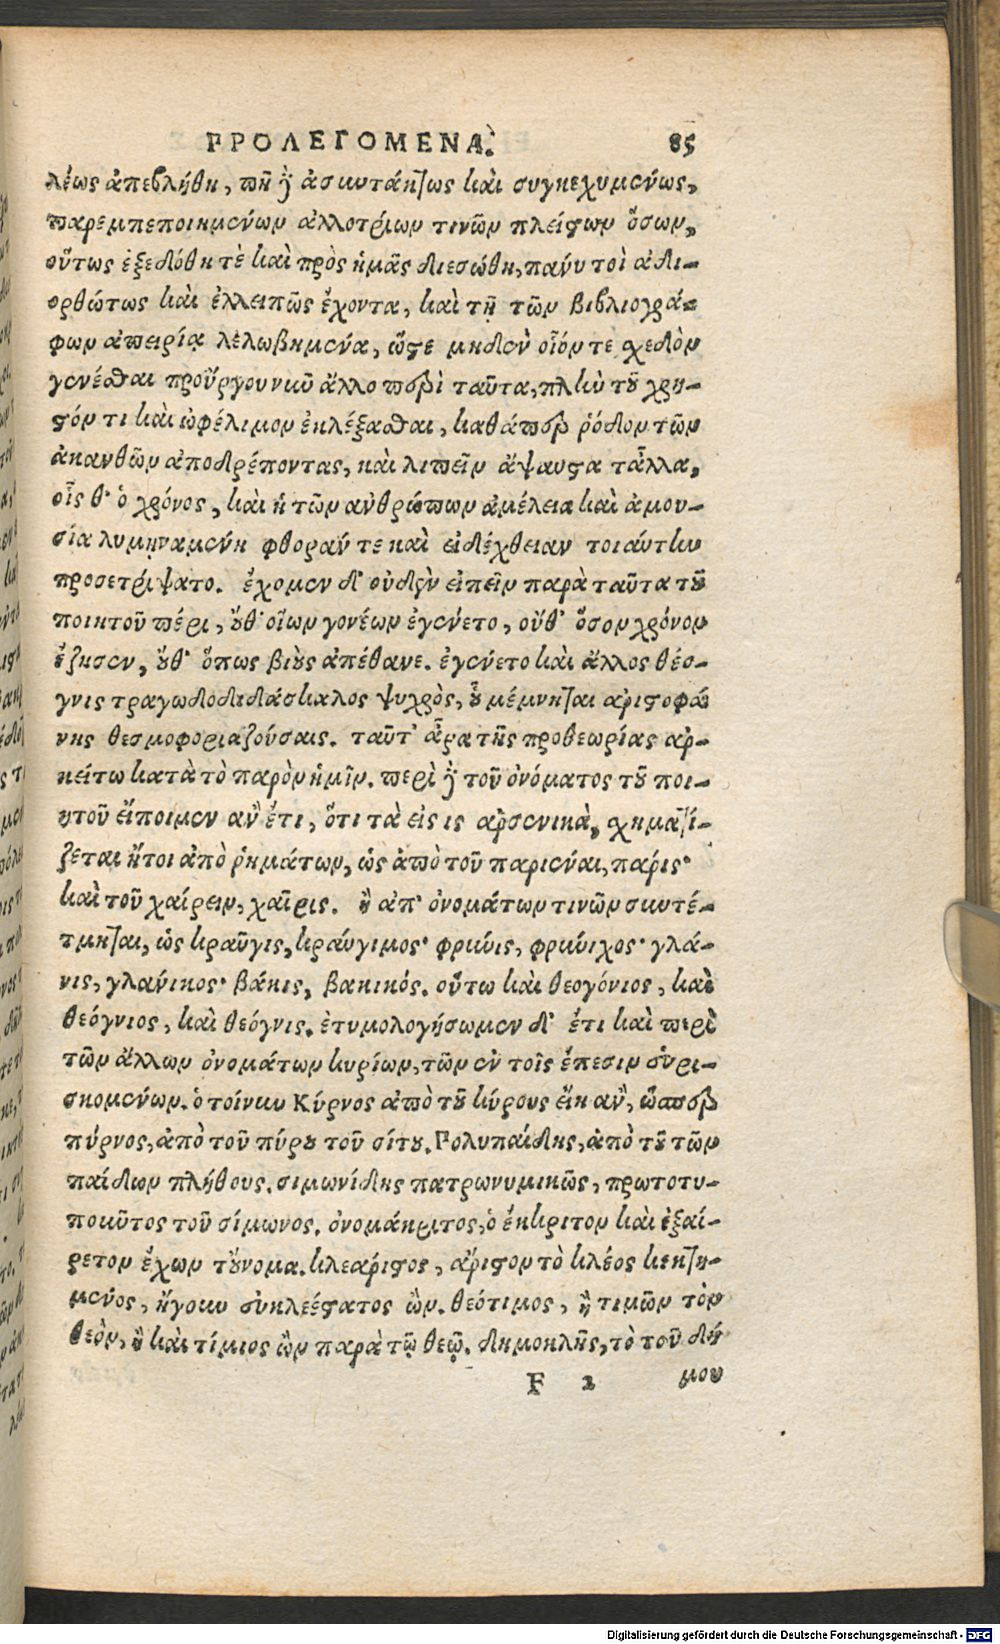 ΠΡΟΛΕΓΟΜΕΝΑ. 85
λέως ἀπεβλήθη, πῆ δὲ ἀσυντάκτως καὶ συγκεχυμένως,
παρεμπεποιημένων ἀλλοτρίων τινῶν πλείστων ὅσων,
οὕτως ἐξεδόθη τὲ καὶ πρὸς ἡμᾶς διεσώθη, πάνυ τοὶ ἀδι-
ορθώτως καὶ ἐλλειπῶς ἔχοντα, καὶ τῇ τῶν βιβλιογρά-
φων ἀπειρίᾳ λελωβημένα, ὥστε μηδὲν οἷόν τε σχεδὸν
γενέσθαι προὔργου νῦν ἄλλο περὶ ταῦτα, πλὴν τοῦ χρη-
στόν τι καὶ ὠφέλιμον ἐκλέξασθαι, καθάπερ ῥόδον τῶν
ἀκανθῶν ἀποδρέποντας, καὶ λιπεῖν ἄψαυστα τἆλλα,
οἷς θ' ὁ χρόνος, καὶ ἡ τῶν ἀνθρώπων ἀμέλεια καὶ ἀμου-
σία λυμηναμένη φθοράν τε καὶ εἰδέχθειαν τοιαύτην
προσετρίψατο. ἔχομεν δ' οὐδὲν εἰπεῖν παρὰ ταῦτα τοῦ
ποιητοῦ πέρι, οὔθ' οἵων γονέων ἐγένετο, οὔθ' ὅσον χρόνον
ἔζησεν, οὔθ' ὅπως βιοὺς ἀπέθανε. ἐγένετο καὶ ἄλλος θέο-
γνις τραγωδοδιδάσκαλος ψυχρὸς, οὗ μέμνηται ἀριστοφά-
νης θεσμοφοριαζούσαις. ταῦτ' ἄρα τῆς προθεωρίας ἀρ-
κείτω κατὰ τὸ παρὸν ἡμῖν. περὶ δὲ τοῦ ὀνόματος τοῦ ποι-
ητοῦ εἴποιμεν ἂν ἔτι, ὅτι τὰ εἰς ις ἀρσενικὰ, σχηματί-
ζεται ἤτοι ἀπὸ ῥημάτων, ὡς ἀπὸ τοῦ παριέναι, πάρις·
καὶ τοῦ χαίρειν, χαῖρις. ἢ ἀπ' ὀνομάτων τινῶν συντέ-
τμηται, ὡς κραῦγις, κραύγιμος· φρύνις, φρύνιχος· γλά-
νις, γλάνικος· βάκις, βακικός. οὕτω καὶ θεογόνιος, καὶ
θεόγνιος, καὶ θεόγνις. ἐτυμολογήσωμεν δ' ἔτι καὶ περὶ
τῶν ἄλλων ὀνομάτων κυρίων, τῶν ἐν τοῖς ἔπεσιν εὑρι-
σκομένων. ὁ τοίνυν Κύρνος ἀπὸ τοῦ κύρους εἴη ἂν, ὥσπερ
πύρνος, ἀπὸ τοῦ πύρου τοῦ σίτου. Πολυπαίδης, ἀπὸ τοῦ τῶν
παίδων πλήθους. σιμωνίδης πατρωνυμικῶς, πρωτοτυ-
ποῦντος τοῦ σίμωνος. ὀνομάκριτος, ὁ ἔκκριτον καὶ ἐξαί-
ρετον ἔχων τοὔνομα. κλεάριστος, ἄριστον τὸ κλέος κεκτη-
μένος, ἤγουν εὐκλεέστατος ὤν. θεότιμος, ἢ τιμῶν τὸν
θεὸν, ἢ καὶ τίμιος ὢν παρὰ τῷ θεῷ. δημοκλῆς, τὸ τοῦ δή
F 2 μου
Digitalisierung gefördert durch die Deutsche Forschungsgemeinschaft - DFG